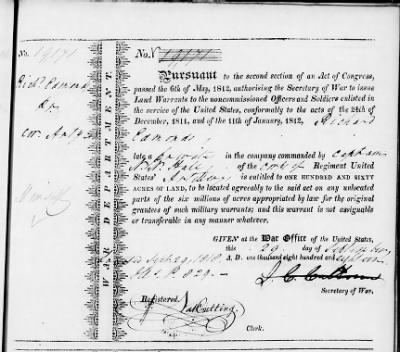 No. 19171
No. 19171
Pursuant to the second section of an Act of Congress,
Rich'd Edmonds
passed the 6th of May, 1812, authorising the Secretary of War to issue
Land Warrants to the noncommissioned Officers and Soldiers enlisted in
the service of the United States, conformably to the acts of the 24th of
December, 1811, and of the 11th of January, 1812, Richard
Edmonds
late a private in the company commanded by Captain
of the Corps of Regiment United
States' Artillery is entitled to ONE HUNDRED AND SIXTY
ACRES OF LAND, to be located agreeably to the said act on any unlocated
parts of the six millions of acres appropriated by law for the original
grantees of such military warrants; and this warrant is not assignable
or transferable in any manner whatever.
WAR DEPARTMENT.
GIVEN at the War Office of the United States,
this 29 day of
Sept 29, 1818. A. D. one thousand eight hundred and eighteen
829.
J. C. Calhoun
Secretary of War.
Registered. Cutting
Clerk.